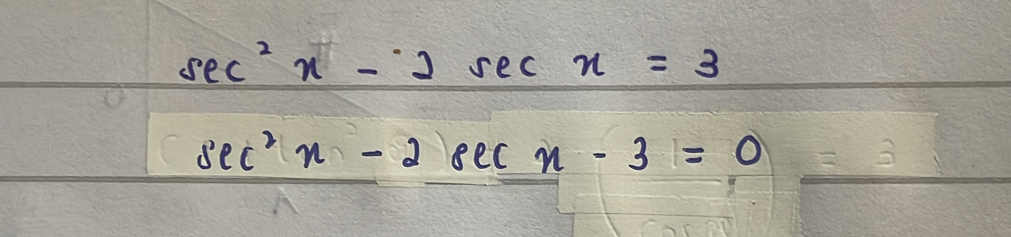 sec² x - 2 sec x = 3
sec² x - 2 sec x - 3 = 0